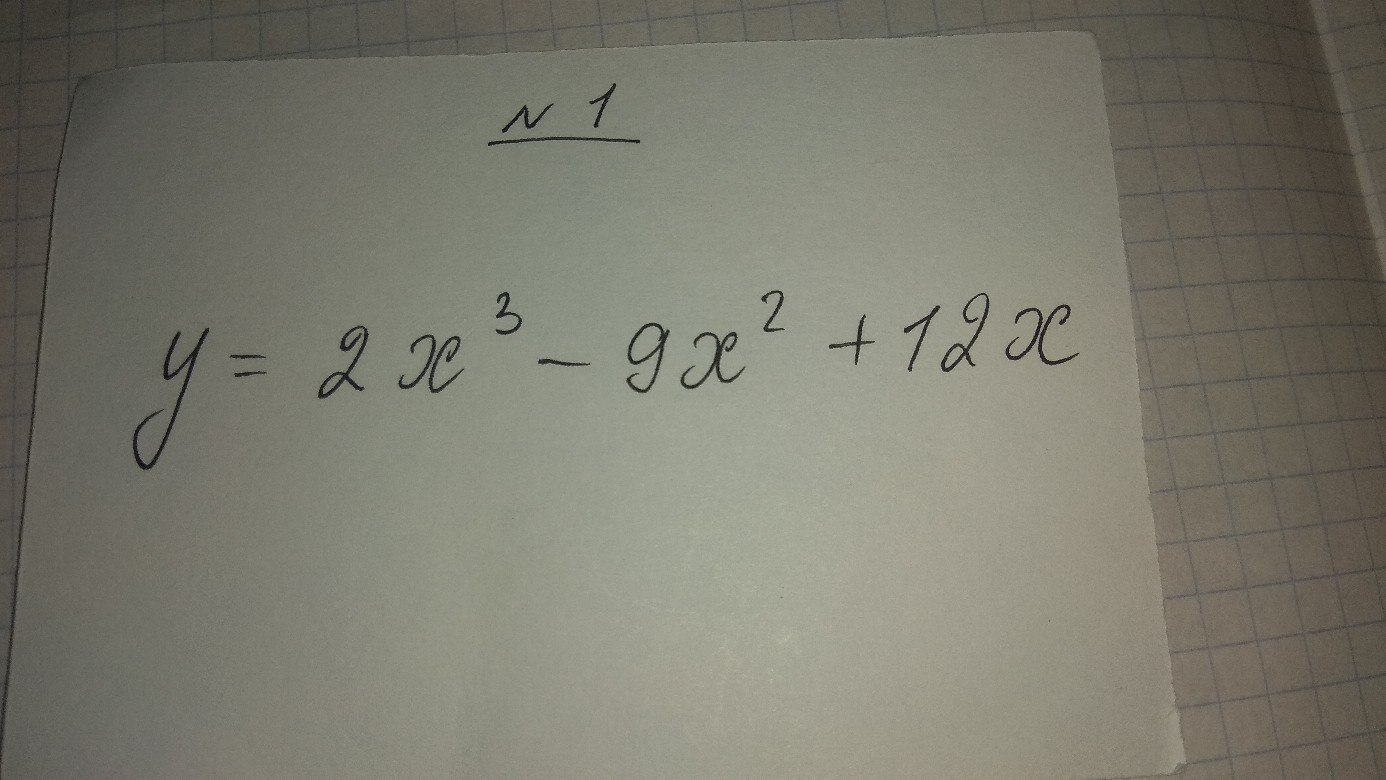 N 1
y = 2x³ - 9x² + 12x